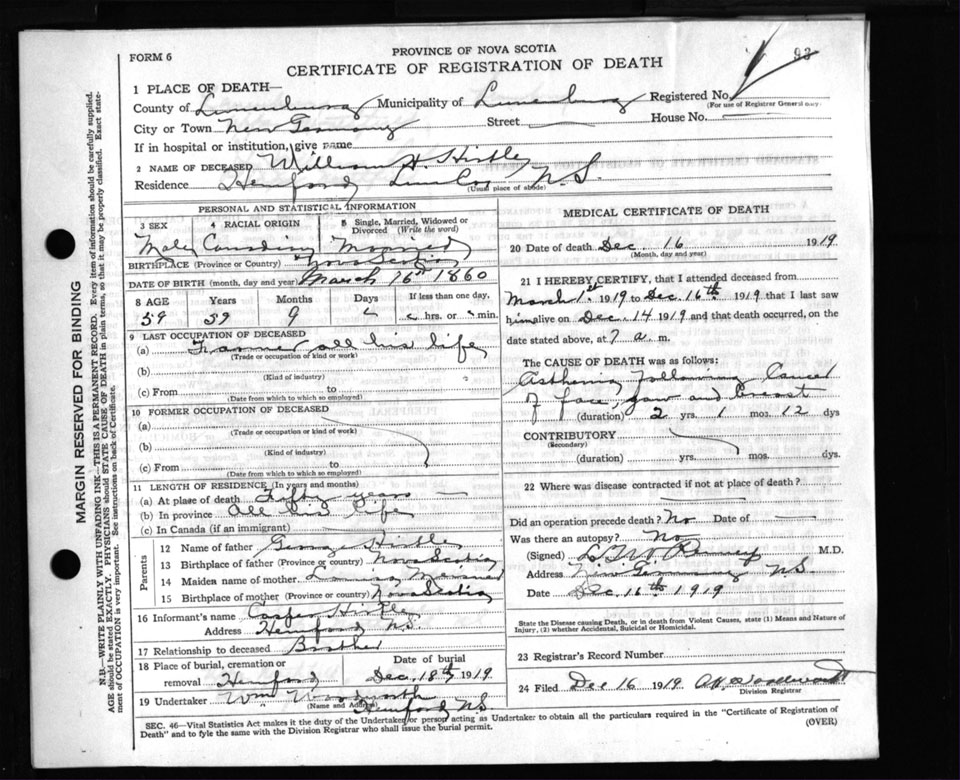 FORM 6
PROVINCE OF NOVA SCOTIA
93
CERTIFICATE OF REGISTRATION OF DEATH
1 PLACE OF DEATH—
County of Lunenburg Municipality of Lunenburg Registered No.
(For use of Registrar General only)
City or Town New Germany Street House No.
If in hospital or institution, give name
2 NAME OF DECEASED William H. Hirtle
Residence Hemford Lun Co N.S.
(Usual place of abode)
PERSONAL AND STATISTICAL INFORMATION
3 SEX 4 RACIAL ORIGIN 5 Single, Married, Widowed or Divorced (Write the word)
Male Canadian Married
BIRTHPLACE (Province or Country) Nova Scotia
DATE OF BIRTH (month, day and year) March 16th 1860
8 AGE Years Months Days If less than one day,
59 59 9 hrs. or min.
9 LAST OCCUPATION OF DECEASED
(a) Farmer all his life
(Trade or occupation or kind or work)
(b)
(Kind of industry)
(c) From to
(Date from which to which so employed)
10 FORMER OCCUPATION OF DECEASED
(a)
(Trade or occupation or kind of work)
(b)
(Kind of industry)
(c) From to
(Date from which to which so employed)
11 LENGTH OF RESIDENCE (In years and months)
(a) At place of death Fifty years
(b) In province All his life
(c) In Canada (if an immigrant)
Parents
12 Name of father George Hirtle
13 Birthplace of father (Province or country) Nova Scotia
14 Maiden name of mother
15 Birthplace of mother (Province or country) Nova Scotia
16 Informant's name Casper Hirtle
Address Hemford N.S.
17 Relationship to deceased Brother
18 Place of burial, cremation or removal Hemford
Date of burial Dec. 18th 1919
19 Undertaker Wm Woodworth
(Name and Address) Hemford N.S.
MEDICAL CERTIFICATE OF DEATH
20 Date of death Dec. 16 1919
(Month, day and year)
21 I HEREBY CERTIFY, that I attended deceased from
March 1st 1919 to Dec. 16th 1919 that I last saw
him alive on Dec. 14 1919 and that death occurred, on the
date stated above, at 7 a. m.
The CAUSE OF DEATH was as follows:
Asthenia following Cancer
of face, jaw and breast
(duration) 2 yrs. 1 mos. 12 dys
CONTRIBUTORY
(Secondary)
(duration) yrs. mos. dys.
22 Where was disease contracted if not at place of death?
Did an operation precede death? No Date of
Was there an autopsy? No
(Signed) M.D.
Address New Germany N.S.
Date Dec. 16th 1919
State the Disease causing Death, or in death from Violent Causes, state (1) Means and Nature of Injury, (2) whether Accidental, Suicidal or Homicidal.
23 Registrar's Record Number
24 Filed Dec 16 1919
Division Registrar
SEC. 46—Vital Statistics Act makes it the duty of the Undertaker or person acting as Undertaker to obtain all the particulars required in the "Certificate of Registration of
Death" and to fyle the same with the Division Registrar who shall issue the burial permit.
(OVER)
MARGIN RESERVED FOR BINDING
N.B.—WRITE PLAINLY WITH UNFADING INK—THIS IS A PERMANENT RECORD. Every item of information should be carefully supplied.
AGE should be stated EXACTLY. PHYSICIANS should STATE CAUSE OF DEATH in plain terms, so that it may be properly classified. Exact statement of OCCUPATION is very important. See instructions on back of Certificate.